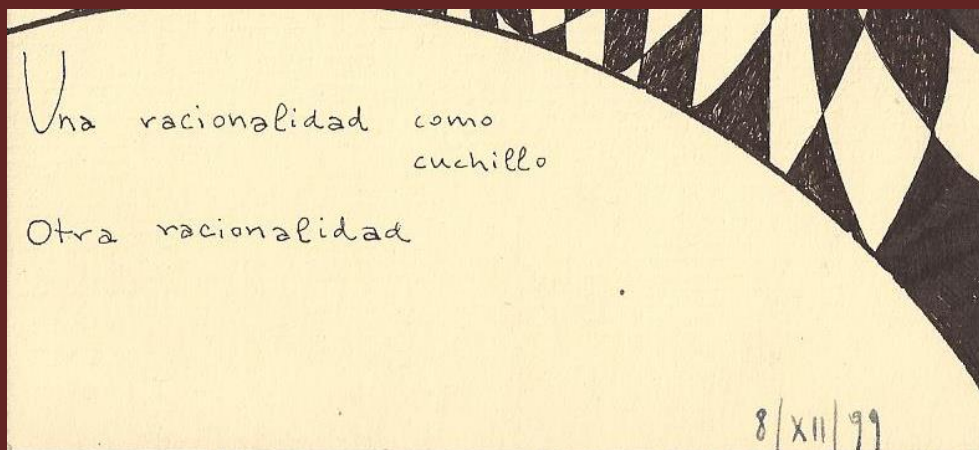 Una racionalidad como
cuchillo
Otra racionalidad
8/XII/99